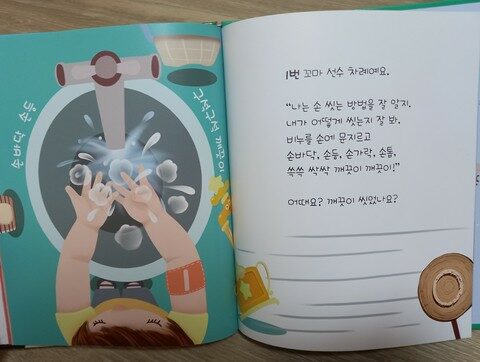 손바닥 손등
구석구석 깨끗이
1번 꼬마 선수 차례예요.
“나는 손 씻는 방법을 잘 알지.
내가 어떻게 씻는지 잘 봐.
비누를 손에 문지르고
손바닥, 손등, 손가락, 손톱,
쓱쓱 싹싹 깨끗이 깨끗이!”
어때요? 깨끗이 씻었나요?
1